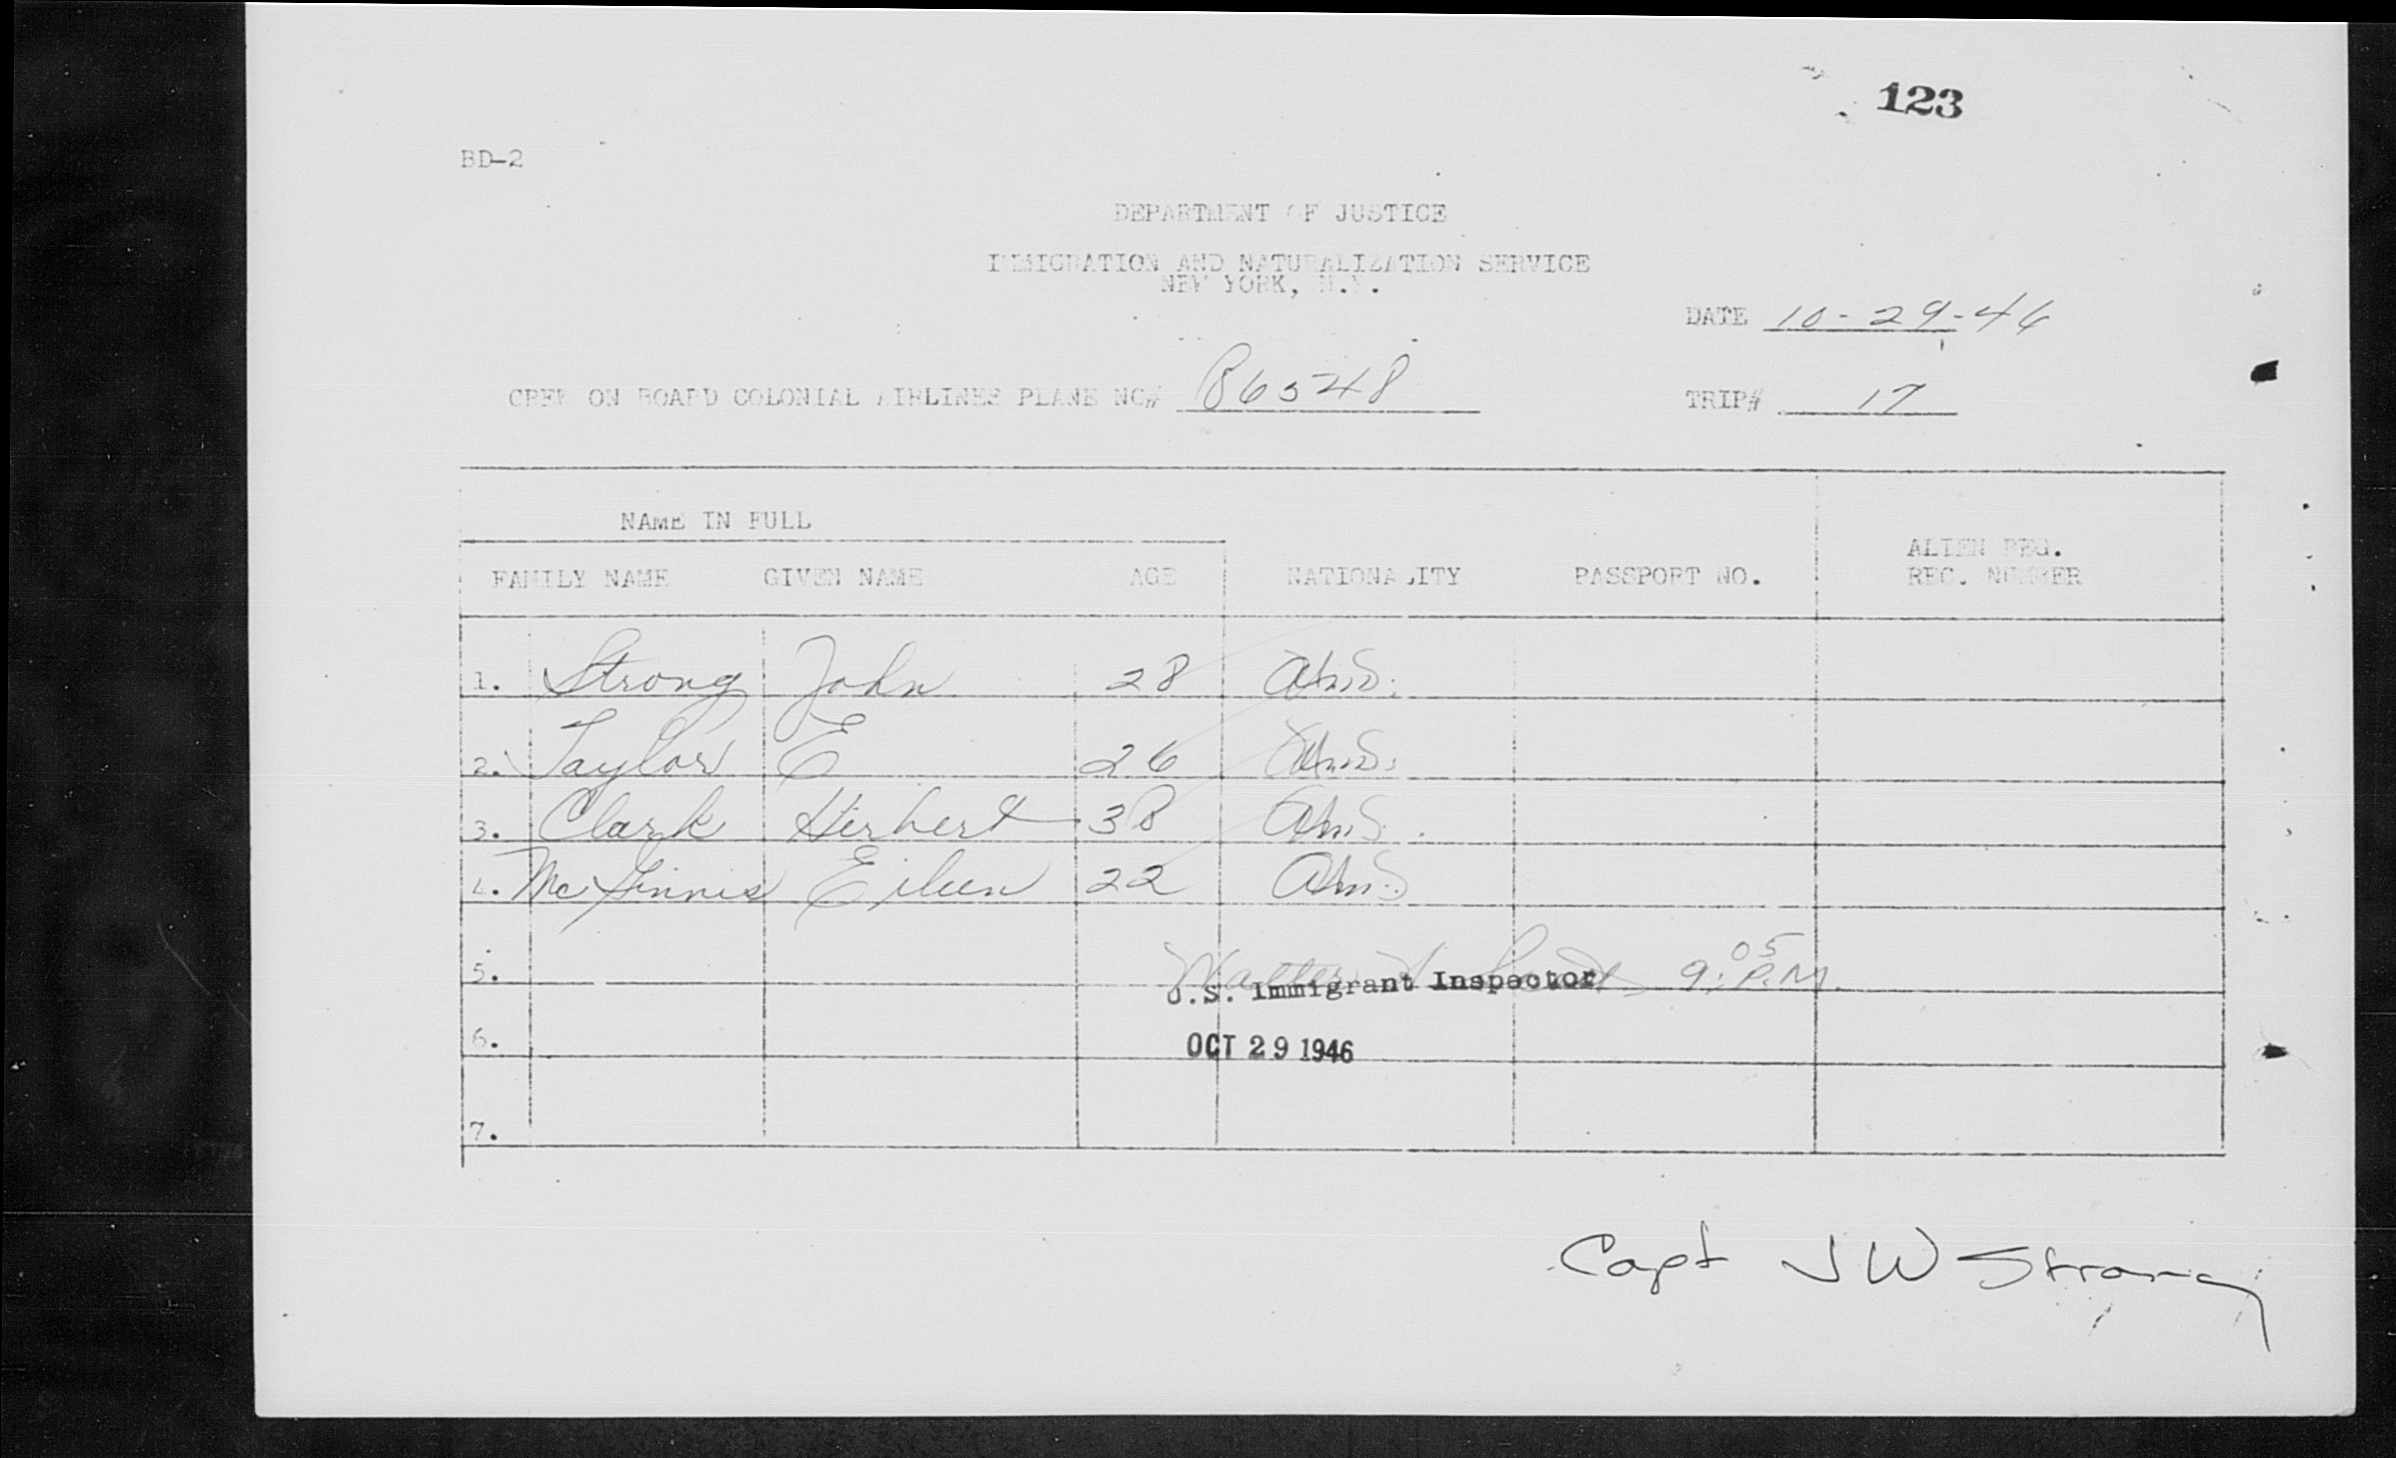 123
BD-2
DEPARTMENT OF JUSTICE
IMMIGRATION AND NATURALIZATION SERVICE
NEW YORK, N.Y.
DATE 10-29-46
CREW ON BOARD COLONIAL AIRLINES PLANE NO# 86548
TRIP# 17
NAME IN FULL
FAMILY NAME GIVEN NAME AGE NATIONALITY PASSPORT NO. ALIEN REG. REC. NUMBER
1. Strong John 28
2. Taylor E 26
3. Clark Herbert 38
4. McGinnis Eileen 22
5. Walter 9:05 P.M.
U.S. Immigrant Inspector
6. OCT 29 1946
7.
Capt J W Strong